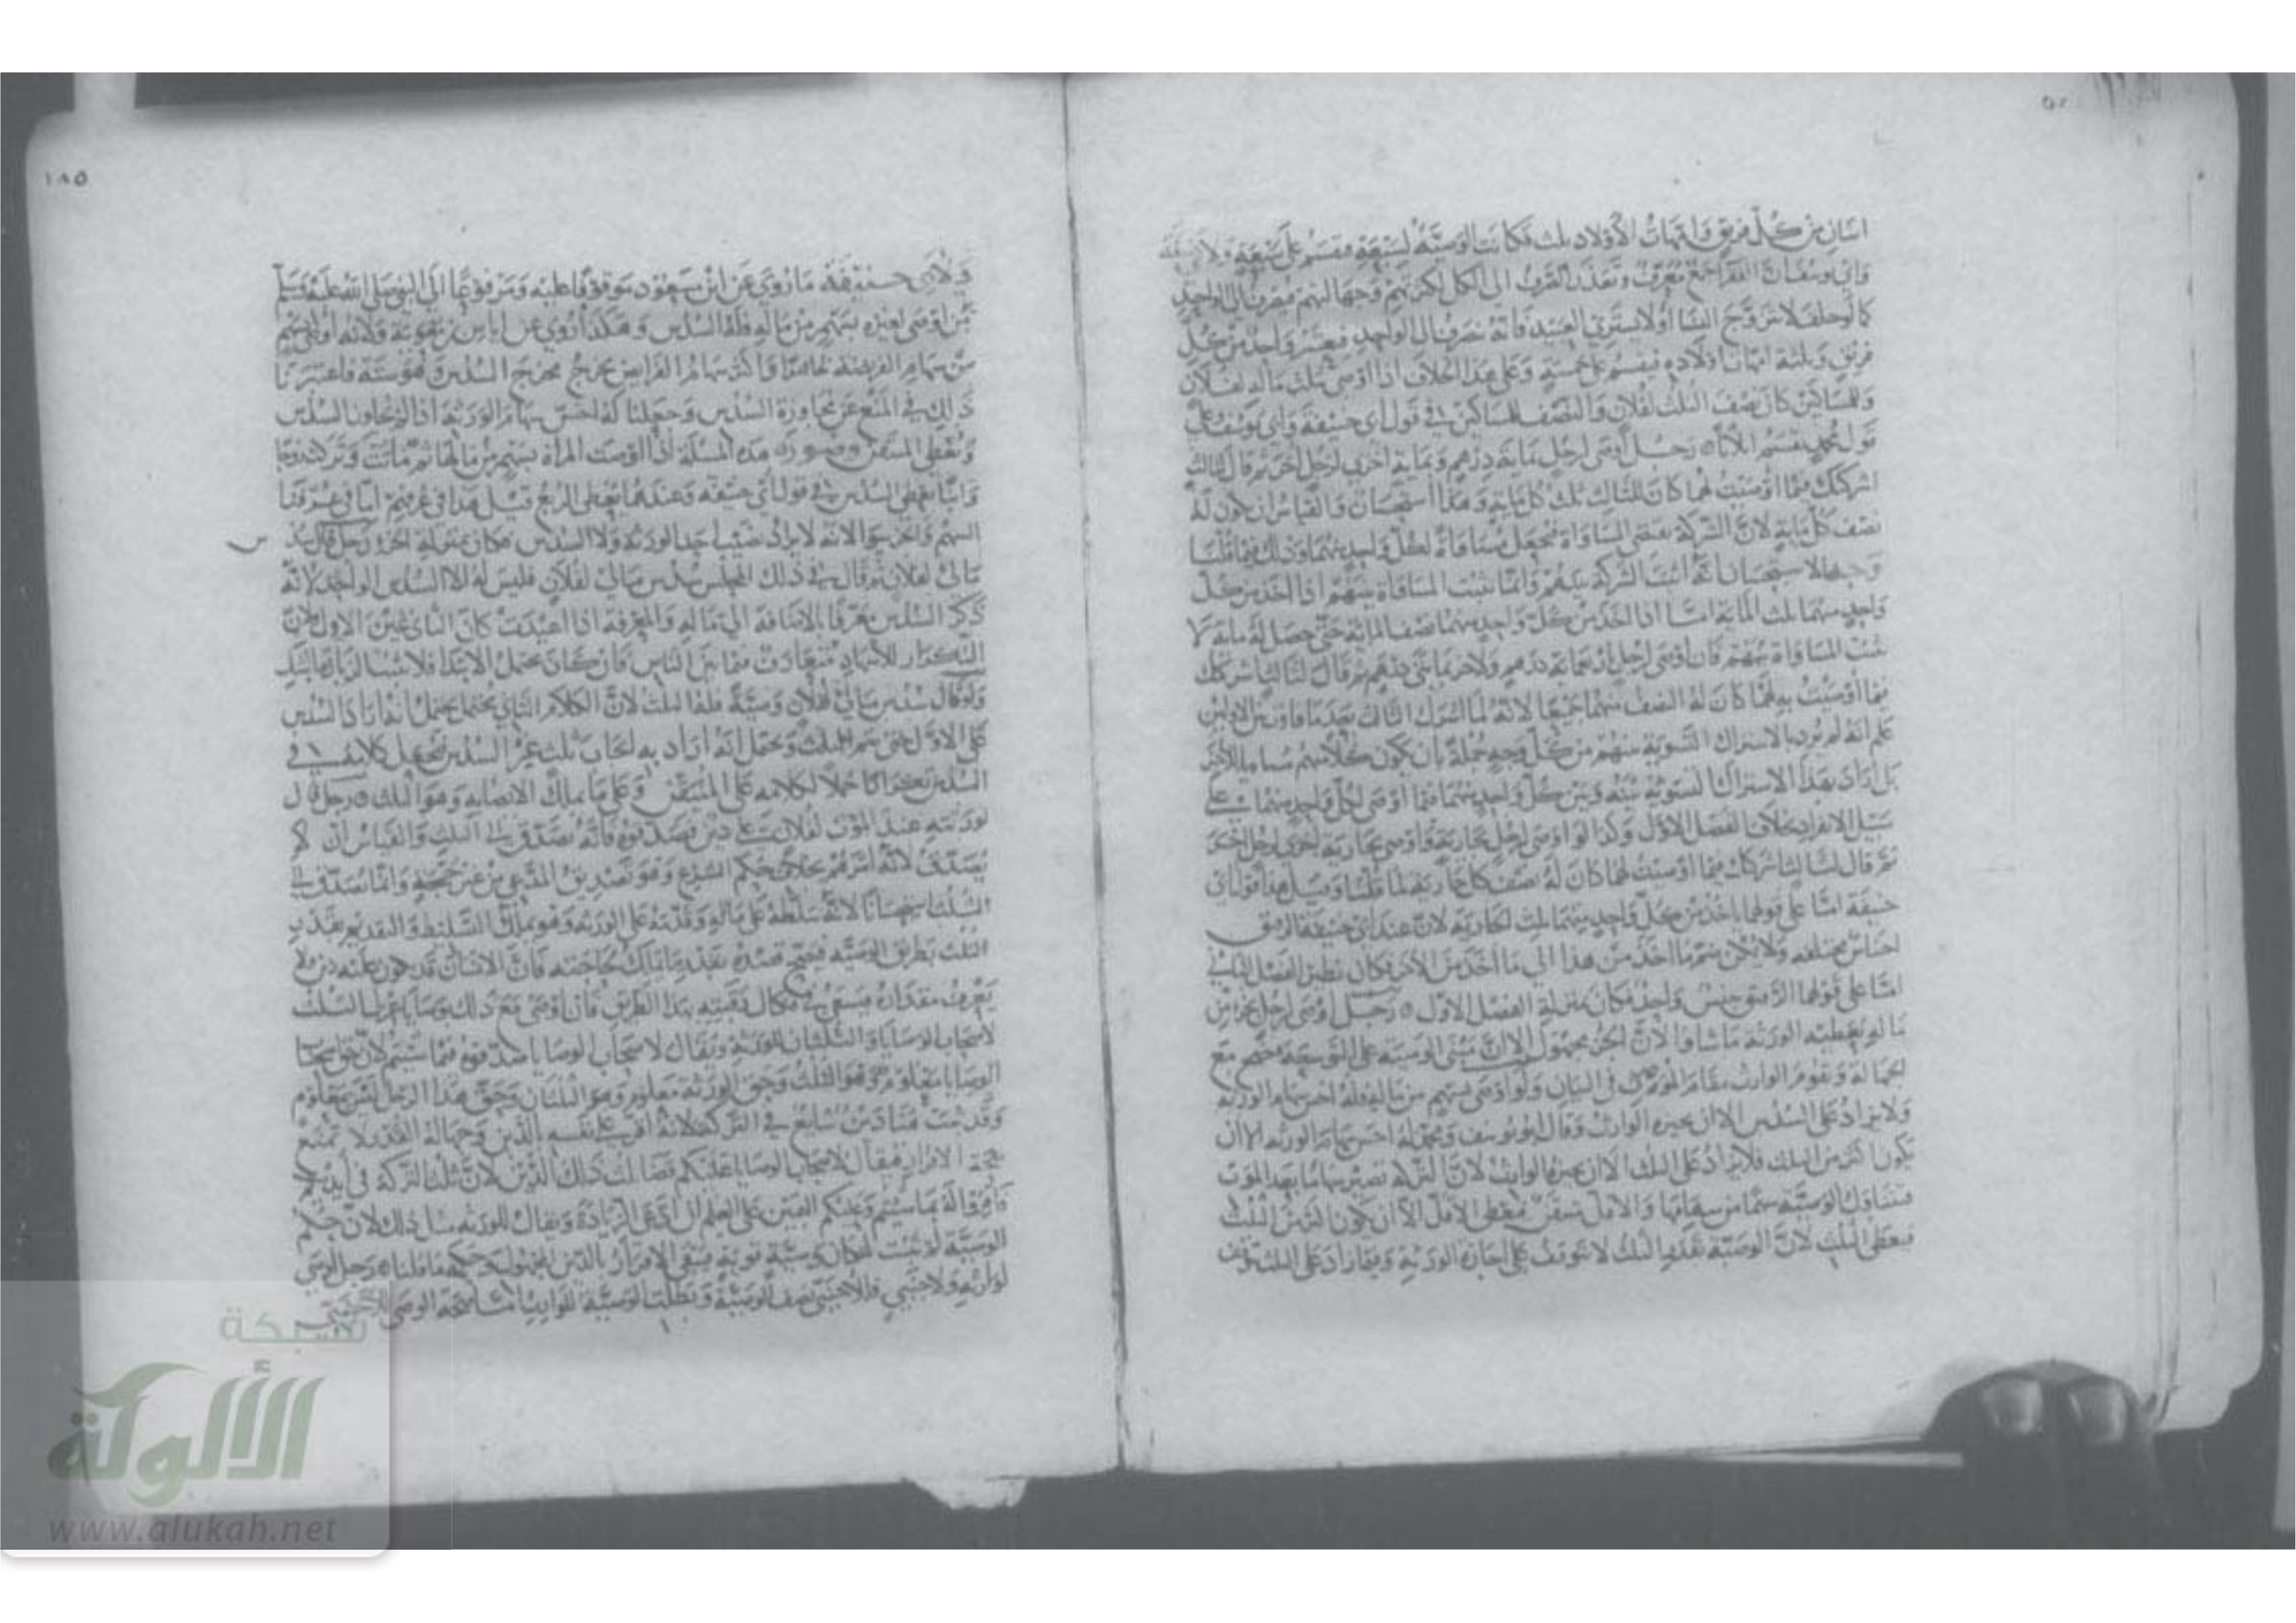 اثنان من كل فريق وامهات الاولاد ثلث فكانت الوصية لسبعة فيقسم على سبعة ولابي حنيفة
وابي يوسف ان الفقرا جمع معرف وتعذر الصرف الى الكل لكثرتهم وجهالتهم فيصرف الى الواحد
كما لو حلف لا يتزوج النسا او لا يشتري العبيد فانه ينصرف الى الواحد فيعتبر واحد من كل
فريق وثلثة امهات اولاده فيقسم على خمسة وعلى هذا الخلاف اذا اوصى بثلث ماله لفلان
وللمساكين كان نصف الثلث لفلان والنصف للمساكين في قول ابي حنيفة وابي يوسف وعلى
قول محمد يقسم اثلاثا ۵ رجل اوصى لرجل بماية درهم وبماية اخرى لرجل اخر ثم قال لثالث
اشركتك فيما اوصيت لهما كان للثالث ثلث كل ماية وهذا استحسان والقياس ان يكون له
نصف كل ماية لان الشركة تقتضي المساواة فيجعل مساواة لكل واحد منهما وذلك فيما قلنا
وجه الاستحسان انه اثبت الشركة بينهم وانما تثبت المساواة بينهم اذا اخذ من كل
واحد منهما ثلث الماية اما اذا اخذ من كل واحد منهما نصف الماية حتى حصل له ماية لا
تثبت المساواة بينهم فان اوصى لرجل اربعماية درهم ولاخر بمايتي درهم ثم قال لثالث اشركتك
فيما اوصيت به لهما كان له النصف منهما جميعا لانه لما اشرك الثالث بعد ما فاوت بين الاولين
علم انه لم يرد بالاشتراك التسوية بينهم من كل وجه جملة بان يكون كل منهم مساويا للاخر
بل اراد بهذا الاشتراك التسوية بينه وبين كل واحد منهما فيما اوصى لكل واحد منهما على
سبيل الانفراد بخلاف الفصل الاول وكذا لو اوصى لرجل بجارية واوصى بجارية اخرى لرجل اخر
ثم قال لثالث اشركتك فيما اوصيت لهما كان له نصف كل جارية لما قلنا وقيل هذا قول ابي
حنيفة اما على قولهما ياخذ من كل واحد منهما ثلث الجارية لان عند ابي حنيفة الرقيق
اجناس مختلفة ولا يمكن ضم ما اخذ من هذا الى ما اخذ من الاخر فكان نظير الفصل الثاني
اما على قولهما الرقيق جنس واحد فكان بمنزلة الفصل الاول ۵ رجل اوصى لرجل بجزء من
ماله يعطيه الورثة ما شاوا لان الجزء مجهول الا ان مبنى الوصية على التوسعة فتصح مع
الجهالة ويقوم الوارث مقام المورث في البيان ولو اوصى بسهم من ماله فله اخس سهام الورثة
ولا يزاد على السدس الا ان يجيزه الوارث وقال ابو يوسف ومحمد له اخس سهام الورثة الا ان
يكون اكثر من الثلث فلا يزاد على الثلث الا ان يجيزه الوارث لان التركة تصير سهاما بعد الموت
فتناول الوصية سهما من سهامها والاقل متيقن فيعطى الاقل الا ان يكون اكثر من الثلث
فيعطى الثلث لان الوصية بقدر الثلث لا تتوقف على اجازة الورثة وفيما زاد على الثلث يتوقف
١٨٥
ولابي حنيفة ما روي عن ابن مسعود موقوفا عليه ومرفوعا الى النبي صلى الله عليه وسلم
من اوصى لغيره بسهم من ماله فله السدس وهكذا روي عن اياس بن معوية ولانه اوصى بسهم
من سهام الفريضة واكثر سهام الفرايض يخرج مخرج السدس وهو ستة فاعتبرنا
ذلك في المنع عن مجاوزة السدس وجعلنا له اخس سهام الورثة اذا لم يجاوز السدس
ويعطى المتيقن وصورة هذه المسئلة اذا اوصت المراة بسهم من مالها ثم ماتت وتركت زوجا
وابنا يعطى السدس في قول ابي حنيفة وعندهما يعطى الربع قيل هذا في عرفهم اما في عرفنا
السهم والجزء سوا لانه لا يراد نصيب احد الورثة ولا السدس فكان بمنزلة الجزء رجل قال سدس
مالي لفلان ثم قال في ذلك المجلس سدس مالي لفلان فليس له الا السدس الواحد لانه
ذكر السدس معرفا بالاضافة الى ماله والمعرفة اذا اعيدت كان الثاني عين الاول لان
التكرار للاشهاد متعارف فيما بين الناس فان كان يحتمل الابتدا فلا تثبت الزيادة بالشك
ولو قال سدس مالي لفلان وصية فله الثلث لان الكلام الثاني يحتمل انه اراد السدس
على الاول حتى يتم الثلث ويحتمل انه اراد به ايجاب ثلث غير السدس فيجعل كلامه في
السدس حملا لكلامه على المتيقن وعلى ما يملك الايصابه وهو الثلث ۵ رجل قال
لورثته عند الموت لفلان علي دين فصدقوه فانه يصدق الى الثلث والقياس ان لا
يصدق لانه امرهم بخلاف حكم الشرع وهو تصديق المدعي من غير حجة وانما يصدق الى
الثلث استحسانا لانه سلطه على ماله وقدمه على الورثة وهو يملك التسليط والتقديم بقدر
الثلث بطريق الوصية فيصح قصده بقدر ما يملك لحاجته فان الانسان قد يكون عليه دين لا
يعرف مقداره فيسعى في فكاك رقبته بهذا الطريق فان اوصى مع ذلك بوصايا عزل الثلث
لاصحاب الوصايا والثلثان للورثة ويقال لاصحاب الوصايا صدقوه فيما شئتم لان حق اصحاب
الوصايا معلوم وهو الثلث وحق الورثة معلوم وهو الثلثان وحق هذا الرجل ليس بمعلوم
وقد ثبت هنا دين شايع في التركة لانه اقر على نفسه بالدين وجهالة القدر لا تمنع
صحة الاقرار فيقال لاصحاب الوصايا عليكم قضا ثلث ذلك الدين لان ثلث التركة في ايديكم
فاقروا له بما شئتم وعليكم اليمين على العلم ان ادعى الزيادة ويقال للورثة مثل ذلك لان حكم
الوصية لم يثبت لمكان وصية قوية فبقي الاقرار بالدين المجهول وحكمه ما قلنا ۵ رجل اوصى
لوارثه ولاجنبي فللاجنبي نصف الوصية وبطلت الوصية للوارث
شبكة
الألوكة
www.alukah.net